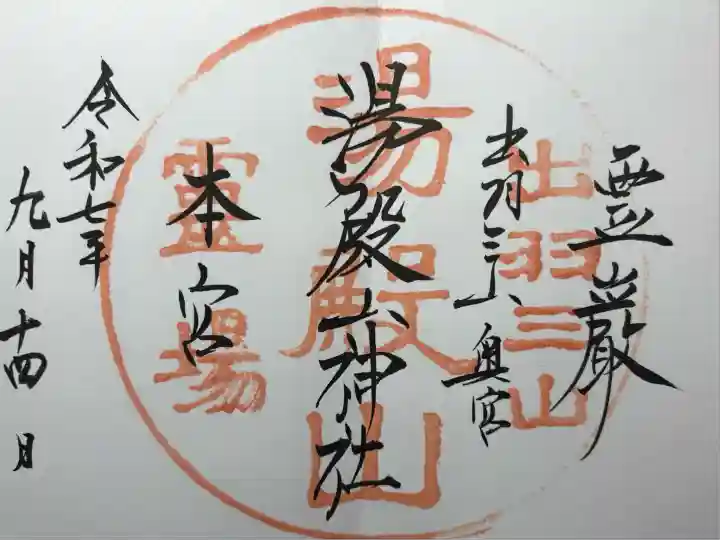 霊巌
出羽三山奥宮
湯殿山神社
本宮
令和七年
九月十四日
出羽三山
湯殿山
靈場